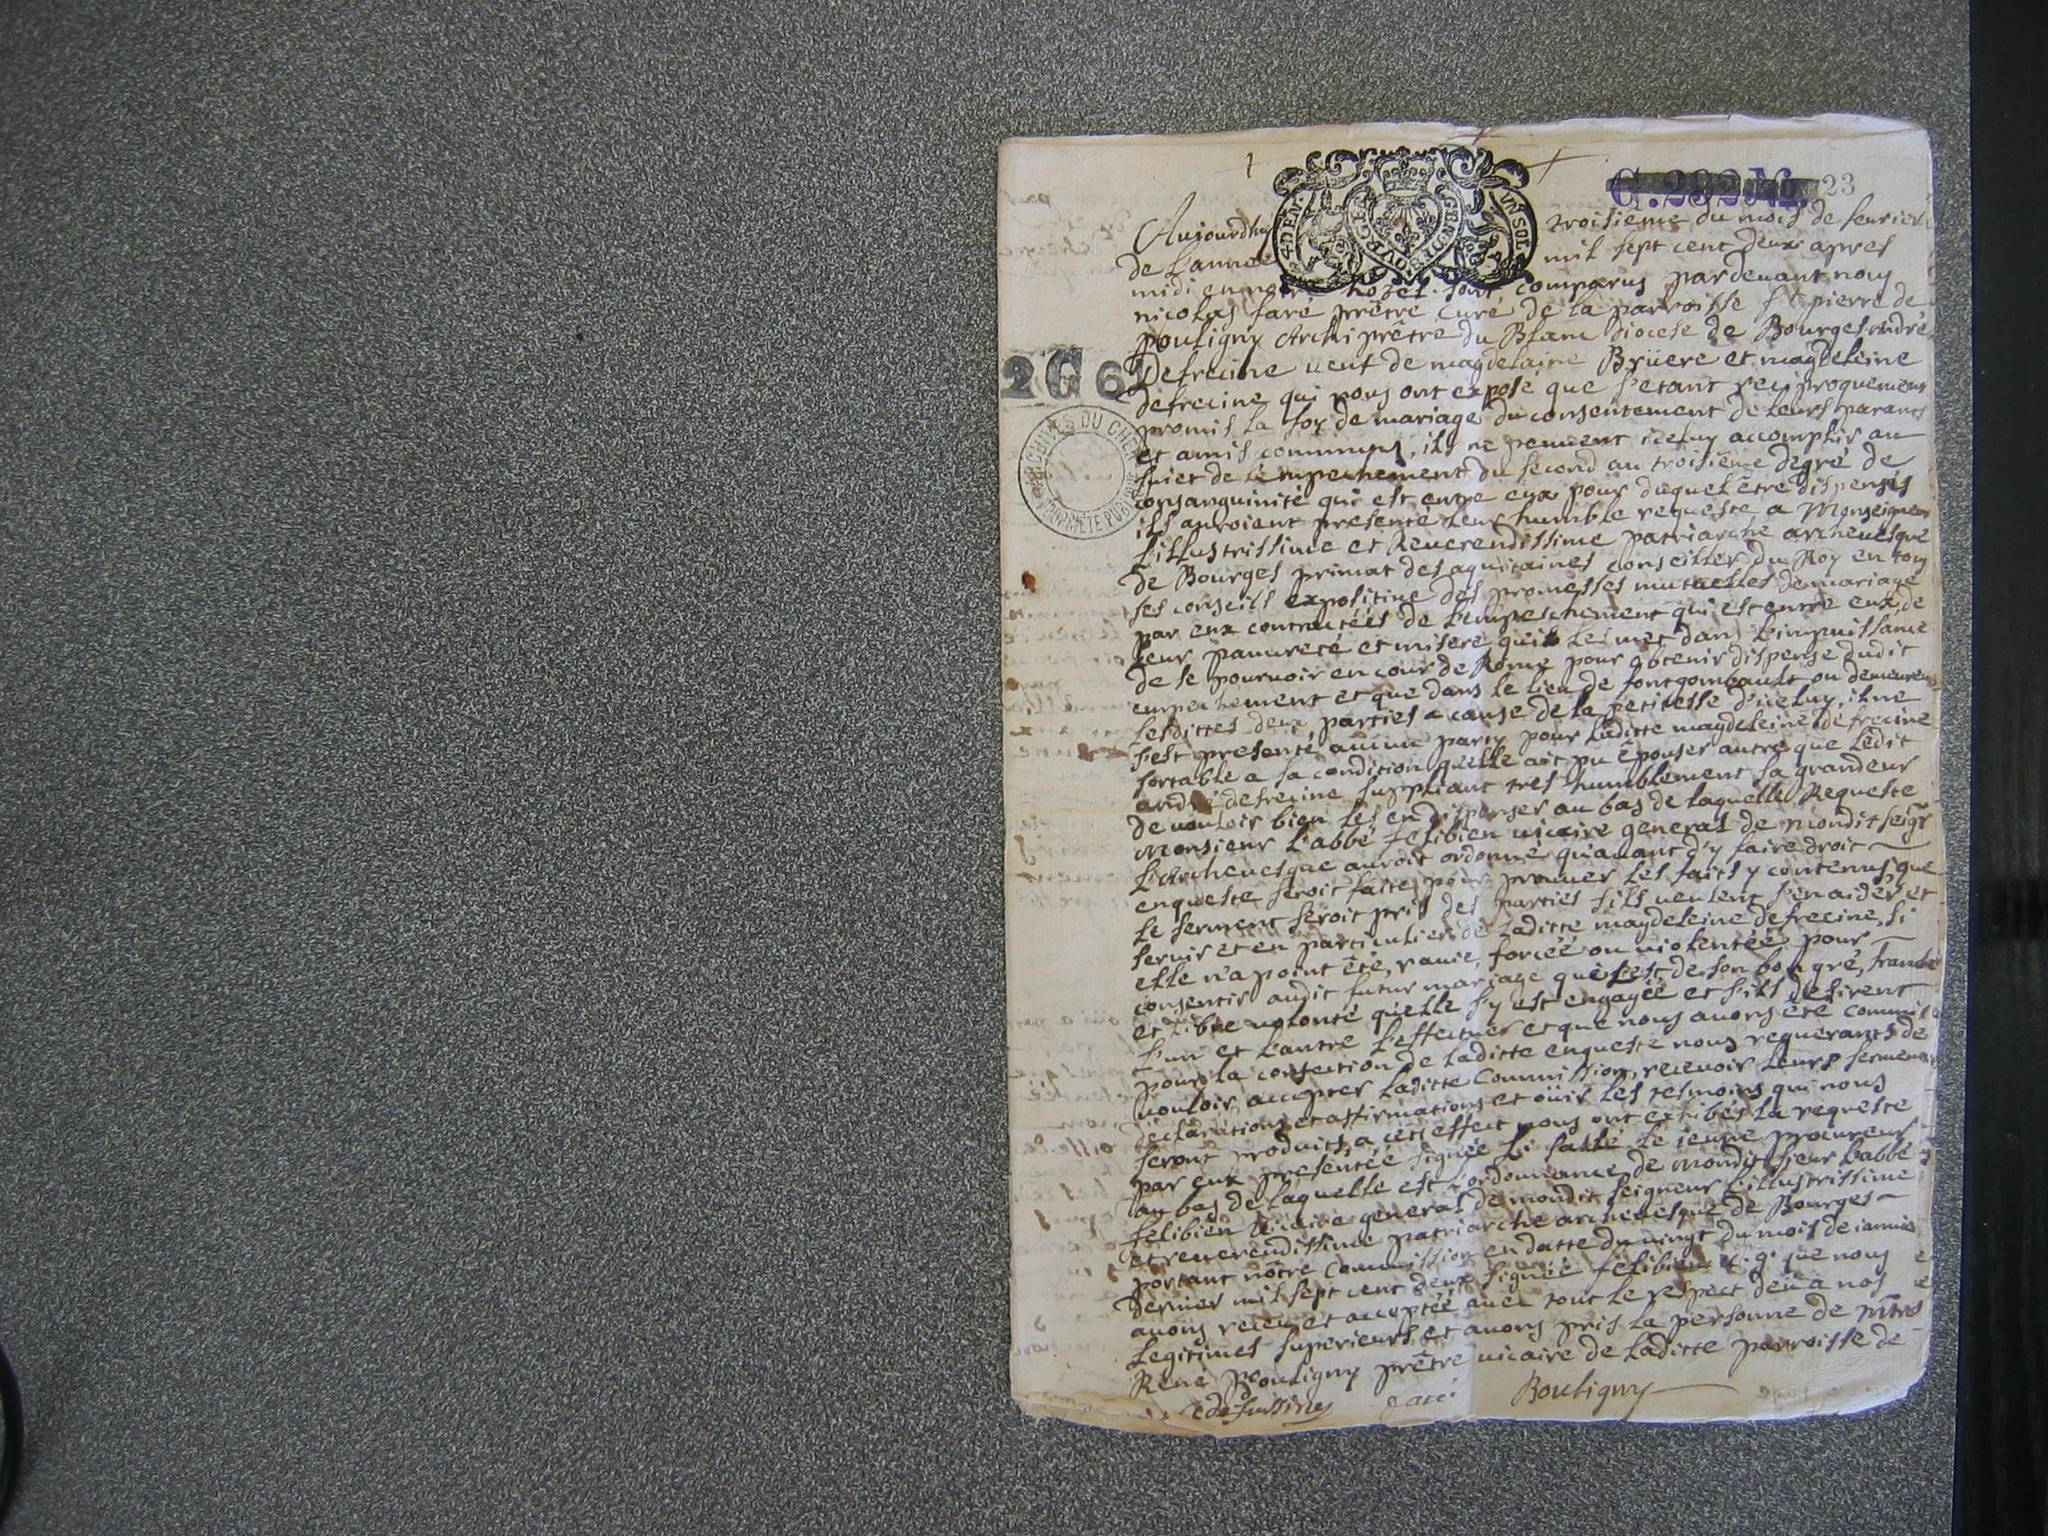 C. 232 M. 23
4 DEN.
GEN. D. BOVRGES
UN SOL
Aujourdhuy troisieme du mois de feurier
de L'année mil sept cent deux apres
midi en notre hotel sont comparus pardeuant nous
nicolas faré prêtre curé de la parroisse St pierre de
pouligny Archiprêtre du Blanc diocese de Bourges André
Defrecine ueuf de magdelaine Brüere et magdeleine
defrecine qui nous ont exposé que s'etant reciproquement
promis la foy de mariage du consentement de Leurs parants
et amis communs, ils ne peuuent iceluy accomplir au
suiet de L'empechement du second au troisième degré de
consanguinité qui est entre eux pour duquel être dispensés
ils auroient presenté Leur humble requeste a Monseigneur
L'illustrissime et Reuerendissime patriarche archeuesque
de Bourges primat des aquitaines conseiller du Roy en tous
ses conseils expositiue des promesses mutuelles de mariage
par eux contractéés de L'empeschement qui est entre eux, de
Leur pauureté et misere qui Les met dans L'impuissance
de se pouruoir en cour de Rome pour obtenir dispense dudit
empechement et que dans le Lieu de fontgombault ou demeurent
Lesdittes deux parties a cause de la petitesse d'iceluy, il ne
s'est presenté aucun party pour Laditte magdeleine defrecine
sortable a sa condition quelle ait pu épouser autre que Ledit
andré defrecine suppliant tres humblement sa grandeur
de uouloir bien Les en dispenser au bas de Laquelle Requeste
Monsieur L'abbé felibien uicaire general de Mondit seigr
L'Archeuesque auroit ordonné qu'auant d'y faire droit
enqueste seroit faitte pour prouuer Les faits y contenus, que
Le serment seroit pris des parties s'ils ueulent s'en aider et
seruir et en particulier de Laditte magdeleine defrecine, si
elle n'a point été, rauie, forcéé ou uiolentéé pour
consentir audit futur mariage que c'est de son bon gré, franche
et Libre uolonté qu'elle s'y est engagéé et s'ils desirent
L'un et L'autre L'effectuer et que nous auons été commis
pour la confection de Laditte enqueste nous requerants de
uouloir accepter Laditte Commission, receuoir Leurs serments
declarations et affirmations et oüir Les tesmoins qui nous
seront produits, a cet effect nous ont exhibés La requeste
par eux presentée signée Le jeune procureur
au bas de Laquelle est L'ordonnance de Mondit sieur L'abbé
felibien Uicaire general de mondit seigneur L'illustrissime
et reuerendissime patriarche archeuesque de Bourges
portant nôtre Commission en datte du uingt du mois de januier
Dernier mil sept cent deux signée felibien u. g. que nous
auons receu et acceptéé auec tout Le respect deu a nos
Legitimes superieurs et auons pris La personne de Mtre
René Pouligny prêtre uicaire de Laditte parroisse de
faré Bouligny
2 G 6
ARCHIVES DU CHER
PROPRIÉTÉ PUBLIQUE